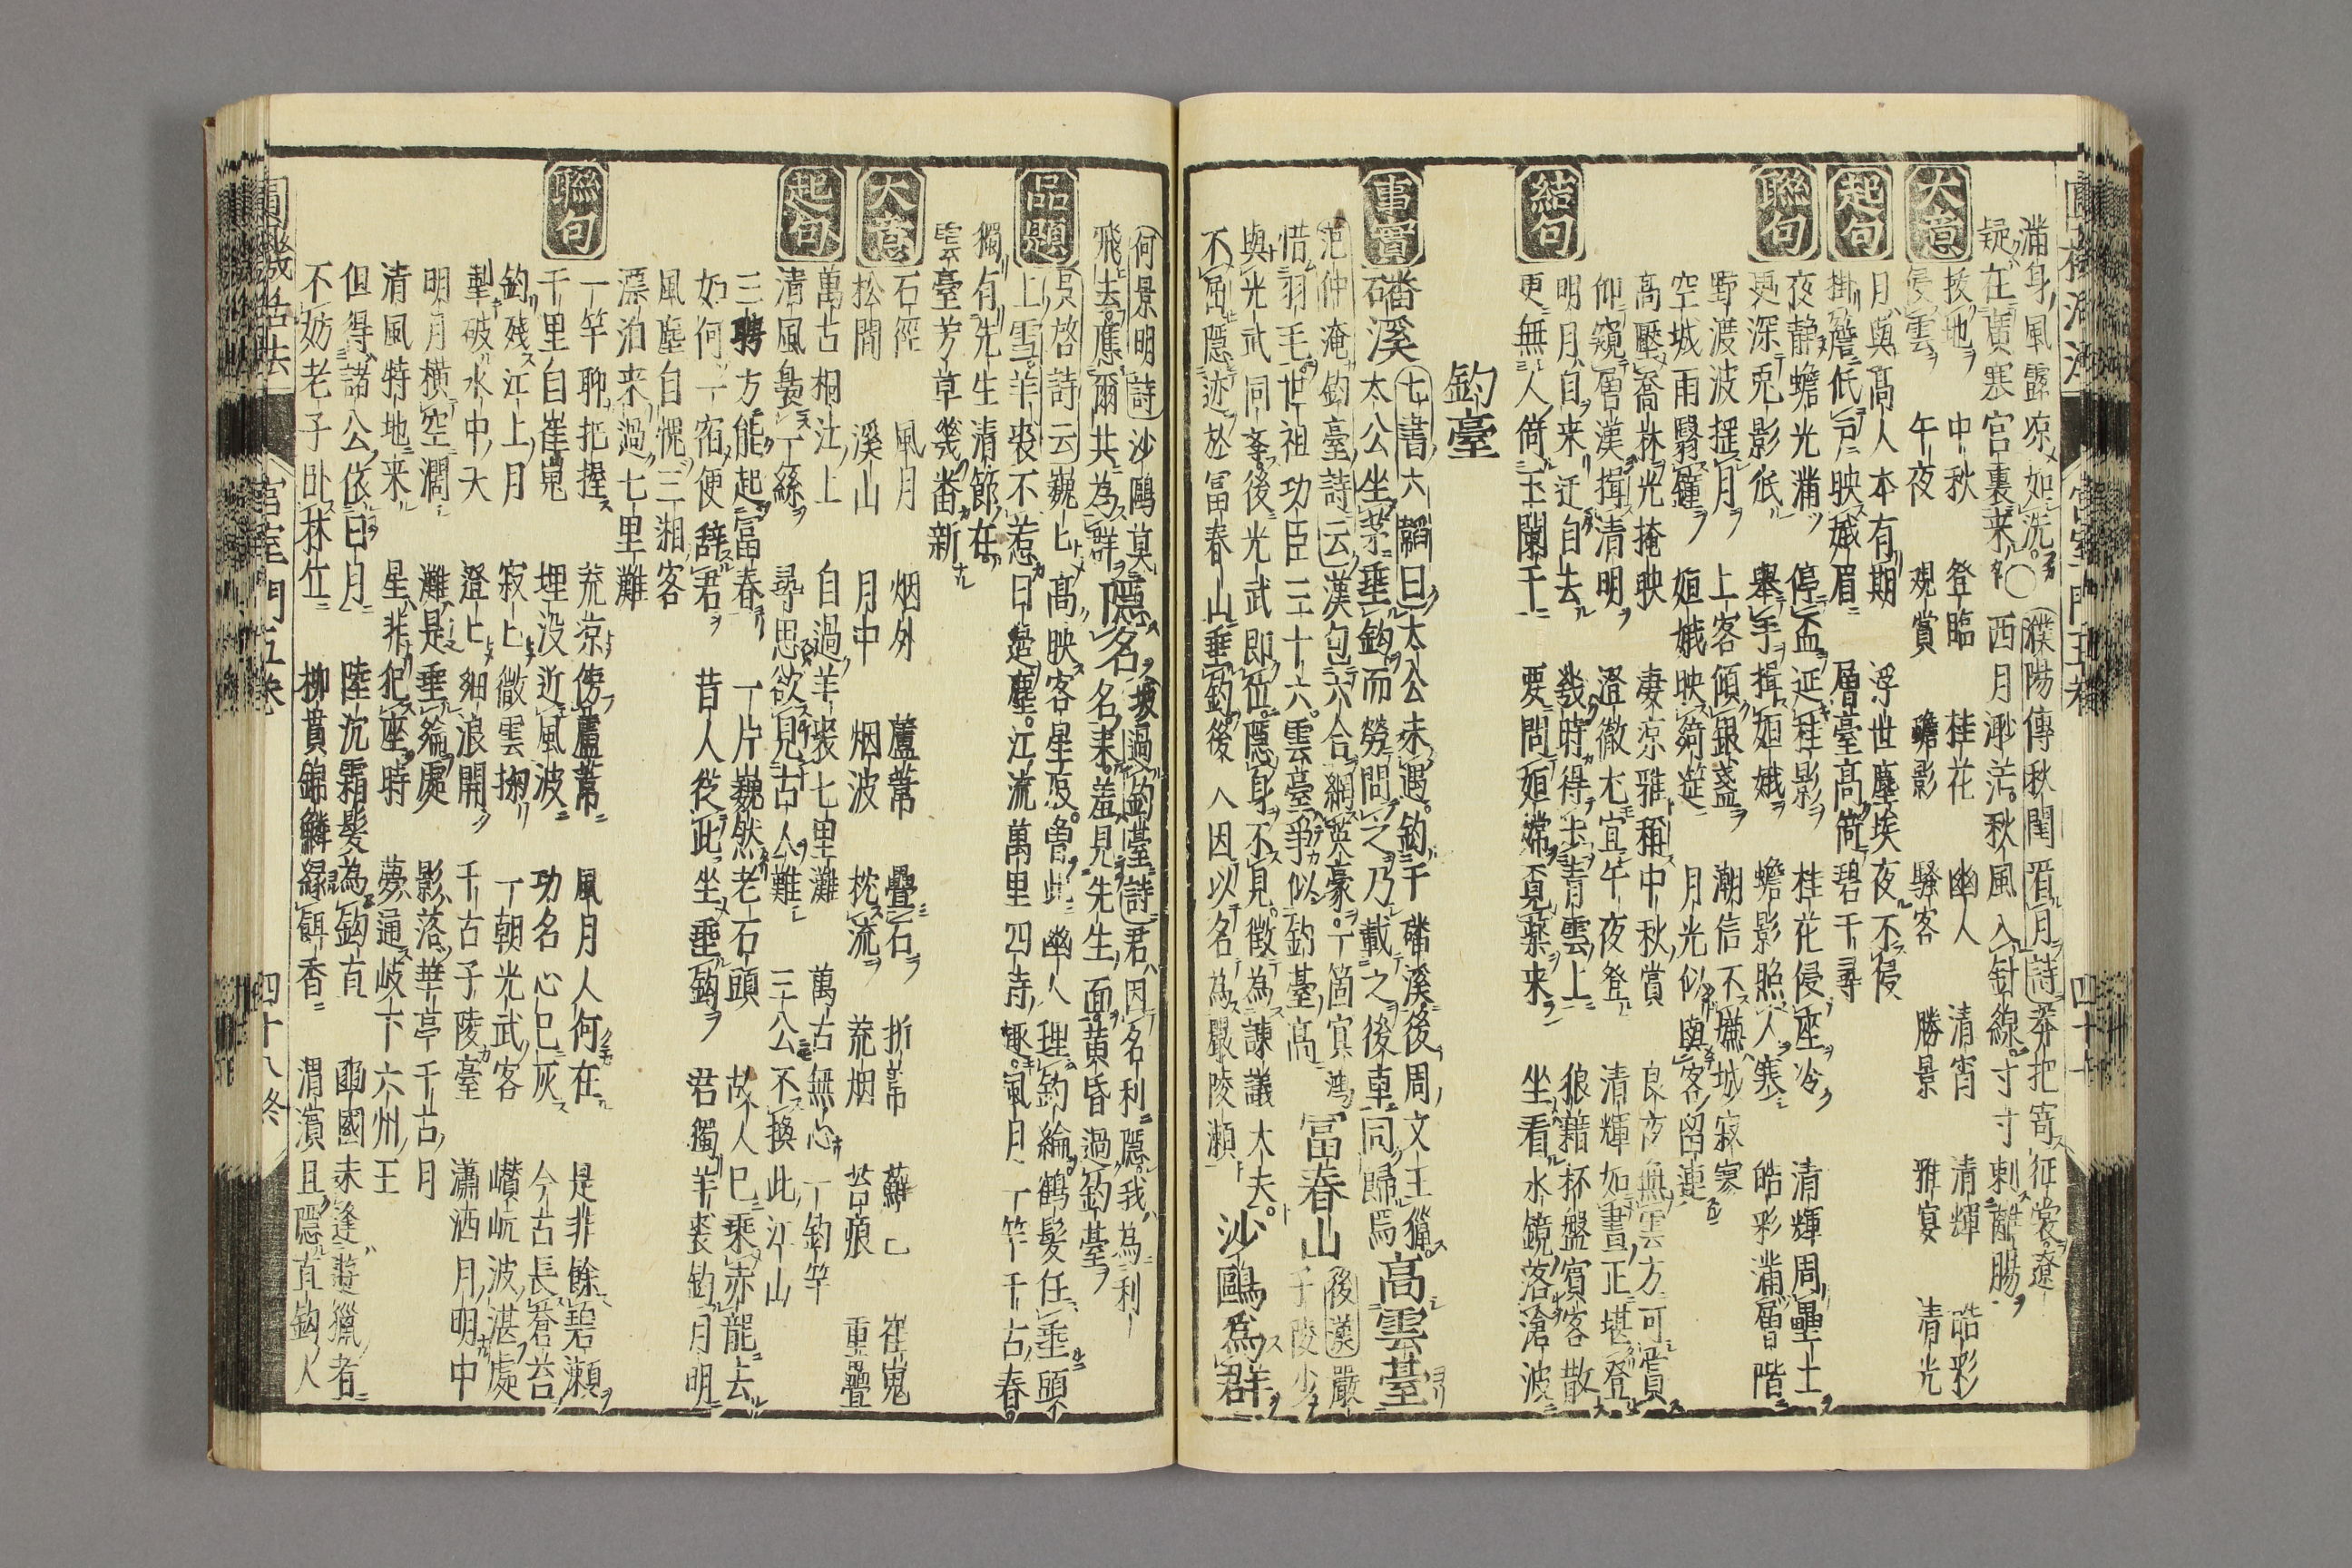 滿身風露凉如洗○濮陽傳秋閨翫月詩莽把寄征裳遼
疑在廣寒宮裏来 西月渺茫秋風入針線寸寸刺離腸
大意
投地 中秋 登臨 桂花 幽人 清宵 清輝 皓彩
侵雲 午夜 観賞 蟾影 騷客 勝景 雅宴 清光
起句
月與高人本有期 浮世塵埃夜不侵
掛簷低戸映娥眉 層臺高倚碧千尋
聯句
夜静蟾光満 停盃延桂影 桂花侵座冷 清輝周壘土
更深兎影低 舉手揖姮娥 蟾影照人寒 皓彩満層階
野渡波揺月 上客傾銀盞 潮信不嫌城寂寥
空城雨翳鐘 姮娥映綺筵 月光似與客留連
高壓喬林光掩映 凄凉雅稱中秋賞 良夜無雲方可賞
仰窺層漢揖清明 澄徹尤宜午夜登 清輝如晝正堪登
結句
明月自来还自去 幾時得去青雲上 狼籍杯盤賓客散
更無人倚玉闌干 要問姮嫦覓藥来 坐看水鏡落滄波
釣臺
事實
磻溪 七書六韜曰太公未遇釣于磻溪後周文王獵
太公坐茅垂鈎而勞問之乃載之後車同歸焉 高雲臺
范仲淹釣臺詩云漢包六合網英豪一箇冥鴻
惜羽毛世祖功臣三十六雲臺爭似釣臺高 富春山 後漢嚴
子陵少
與光武同斈後光武即位隱身不見徴為諫議大夫
不屈隱迹於富春山垂釣後人因以名為嚴陵瀬 沙鷗為群
何景明詩沙鷗莫
飛去應爾共為群 隱名 坡過釣臺詩君因名利隱我為利
名来羞見先生面黄昏過釣臺
品題
吴啓詩云巍巍高映客星
上雪羊裘不惹日邊塵江流萬里四時
獨有先生清節在
雲臺芳草幾番新
大意
石徑 風月 烟外 蘆葦 疊石 折葦 蘚 崔嵬
松間 溪山 月中 烟波 枕流 荒烟 苔痕 重疊
起句
萬古桐江上 自過羊裘七里灘 萬古無心一釣竿
清風裊一絲 尋思欲見古人難 三公不換此江山
三聘方能起富春 一片巍然老石頭 故人已乘赤龍去
如何一宿便辞君 昔人従此坐垂鈎 君獨羊裘釣月明
風塵自愧三湘客
漂泊来過七里灘
聯句
一竿聊把握 荒凉傍蘆葦 風月人何在 是非餘碧瀬
千里自崔嵬 埋没近風波 功名心已灰 今古長蒼苔
釣残江上月 寂寂微雲掬 一朝光武客 巑岏波湛處
掣破水中天 澄澄細浪開 千古子陵臺 瀟洒月明中
明月横空濶 灘是垂綸處 影落華亭千古月
清風特地来 星非犯座時 夢通岐下六州王
但得諸公依日月 陸沉霜髪為鈎直 幽國未逢遊獵者
不妨老子卧林丘 柳貫錦鱗縁餌香 渭濱且隱直鈎人
宮室門五巻
四十八終